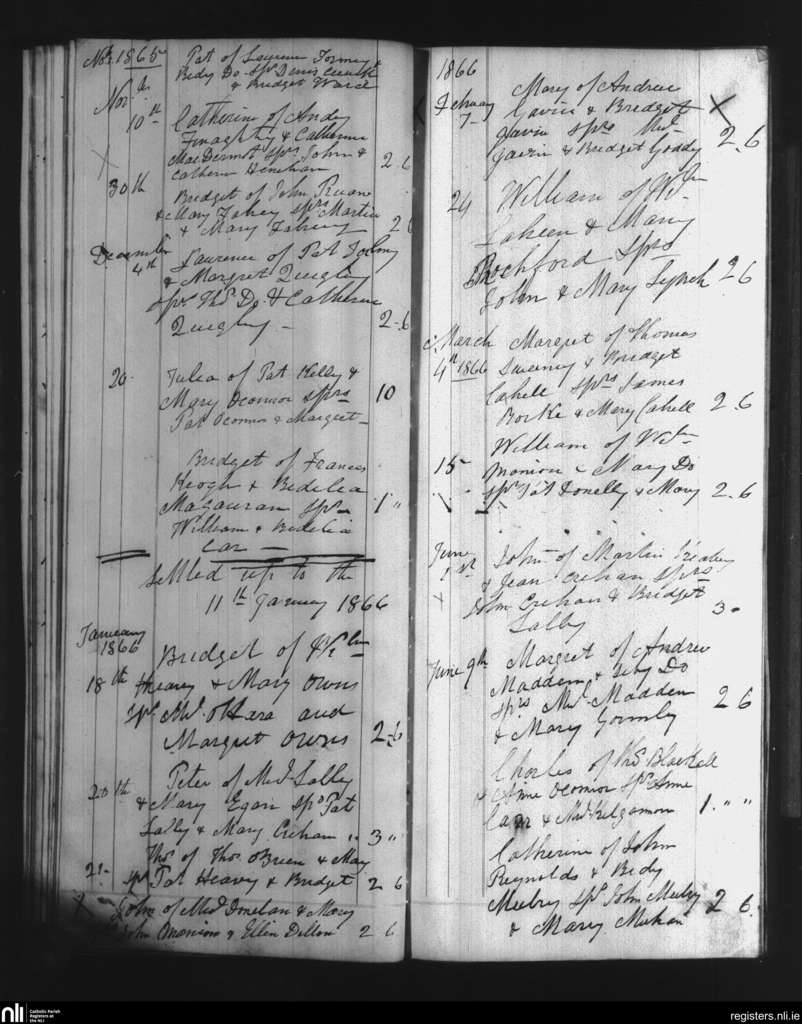 Nov. 1865 Pat of Laurence Tormey &
Bridy Do Sps Denis
& Bridget Ward
Nov. th
10th Catherine of Andy
Finaghty & Catherine
MacDermot Sps John &
Catherine Henehan 2-6
30th Bridget of John Ruane
& Mary Fahey Sprs Martin
& Mary Fahey 2 6
December
4th Laurence of Pat
& Margret Quigley
Sprs Ths Do & Catherine
Quigley — 2-6
20 Julia of Pat Kelly &
Mary Oconnor Sprs 10
Pat Oconnor & Margret
Bridget of Francis
Keogh & Bedelia
Magauran Sprs 1 "
William & Bedelia
Car —
Settled up to the
11th January 1866
January
1866 Bridget of Wilm
18th Heavy & Mary Owns
Sps Ml OHara and
Margret Owns 2-6
20th Peter of Mel Lally
& Mary Egan Sps Pat
Lally & Mary Crehan " 3 "
Ths of Ths OBrien & Mary
21- Sps Pat Heavy & Bridget 2 6
X John of Mel Donelan & Mary
John Manion & Ellin Dillon 2 6
1866
February Mary of Andrew
7- Gavin & Bridget X
Gavin Sprs Ml
Gavin & Bridget Goddy 2-6
24 William of Wm
Laheen & Mary
Rochford Sprs
John & Mary Lynch 2 6
March Margret of Thomas
4th 1866 Sweeney & Bridget
Cahill Sprs James
Borke & Mary Cahill 2 6
William of Wm
15- Manion & Mary Do
Sps Pat Donelly & Mary 2-6
June John of Martin
1st & Jean Crehan Sprs
X John Crehan & Bridget
Lally 3 "
June 9th Margret of Andrew
Madden & Do
Sprs Ml Madden
& Mary Gormly 2 6
Charles of Ths Blackall
& Anne Oconnor Sps Anne
Carr & Ml Kilgannon 1 " "
Catherine of John
Reynolds & Bedy
Mulry Sps John Mulry 2 6
& Mary Mehan
nli
Catholic Parish
Registers at
the NLI
registers.nli.ie